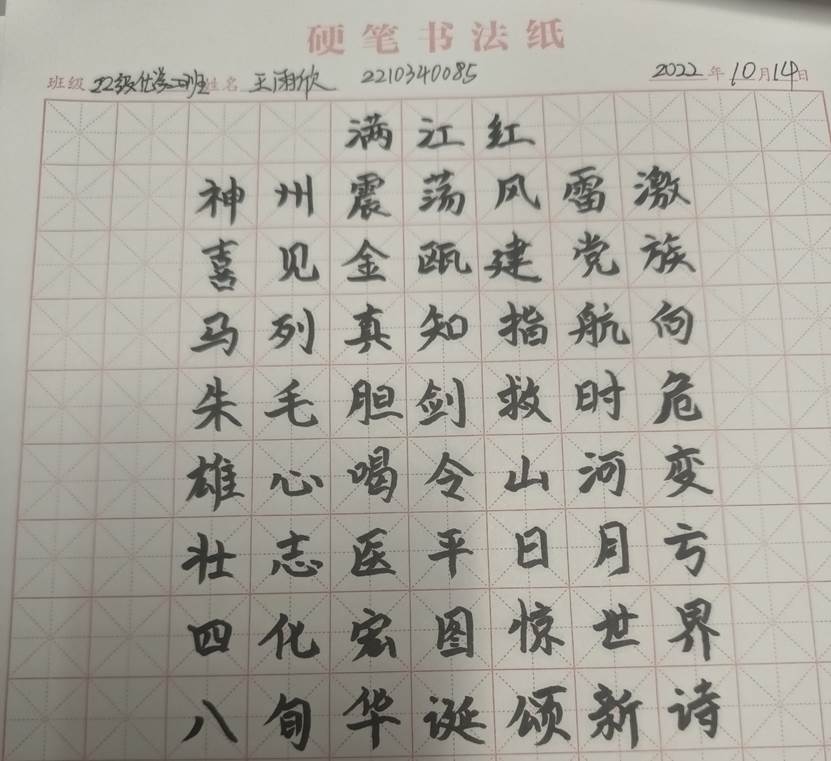 硬笔书法纸
班级 22级化学二班 姓名 王雨欣 2210340085 2022年10月14日
满江红
神州震荡风雷激
喜见金瓯建党族
马列真知指航向
朱毛胆剑救时危
雄心喝令山河变
壮志医平日月亏
四化宏图惊世界
八旬华诞颂新诗